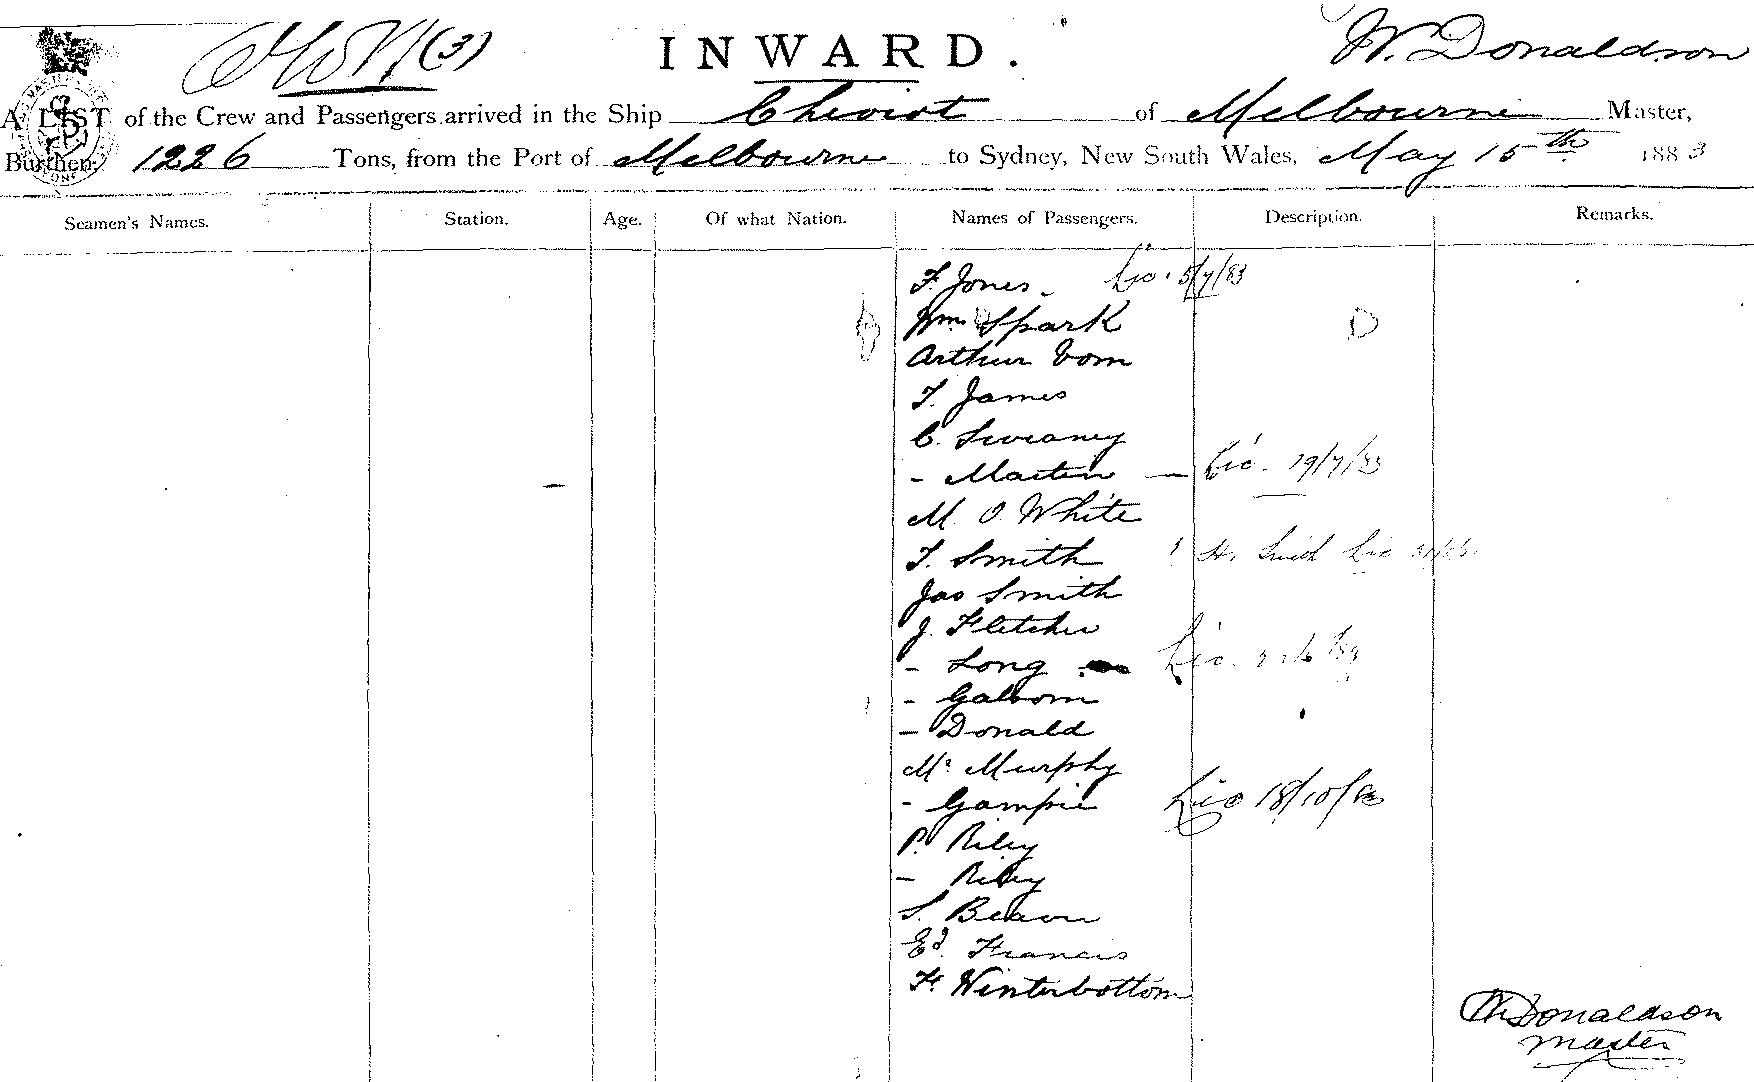 (3) INWARD. W. Donaldson
A LIST of the Crew and Passengers arrived in the Ship Cheviot of Melbourne Master,
Burthen, 1226 Tons, from the Port of Melbourne to Sydney, New South Wales, May 15th 1883
Seamen's Names. Station. Age. Of what Nation. Names of Passengers. Description. Remarks.
F. Jones. Lic. 5/7/83
Wm Spark D
Arthur Vom
T. James
C. Sweaney
- Martin - Lic. 19/7/83
M. O. White
T. Smith Smith Lic
Jas Smith
J. Fletcher
- Long Lic.
-
- Donald
Mc Murphy
- Gampie Lic 18/10/83
P. Riley
- Riley
S. Beaon
Ed. Francis
H. Winterbottom
W Donaldson
Master